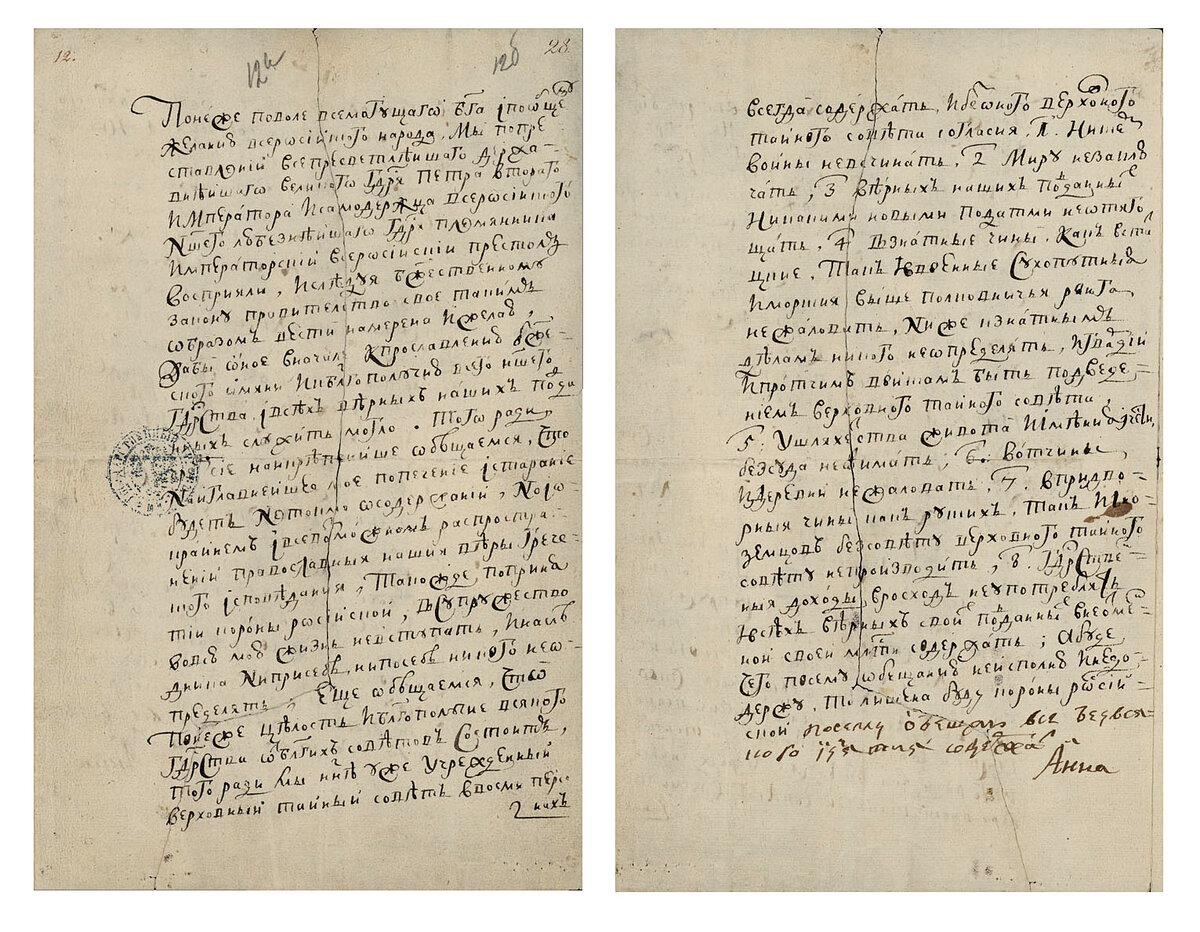 12.
12а
12б
28
Понеже поволе всемогущаго бга і пообще
желанию всеросійского народа, Мы попре
ставлениі всепресветлѣйшаго Держа-
внѣйшаго великого Гдря Петра втораго
Императора И самодержца всеросійского
Ншего любезнѣйшаго Гдря племянника
Императорскиі всеросійскиі престолъ
восприяли, И слѣдуя бжественному
закону правителство свое такимъ
образомъ вести намерена И желаю,
дабы оное вначале к прославлению бже-
ского имяни И к блгополучию всего ншего
Гдрства, і всѣхъ вѣрныхъ нашихъ подда
ныхъ служить могло. Того ради,
чрез сие наикрѣпчайше обѣщаемся, что
Наиглавнейшее мое попечение і старание
будетъ Не токмо о содержаниі, Но і о
крайнемъ і всевозможномъ распростра-
нениі православныя нашия вѣры Грече-
ского ісповѣдания, Такожде поприня
тіи короны росиской, в супружество
во всю мою жизнь не вступать, И наслѣ
дника ни при себѣ, ни по себѣ никого не о-
пределять, Еще обѣщаемся, что
понеже цѣлость И блгополучие всякого
Гдрства от блгихъ совѣтовъ состоитъ,
того ради мы ннѣ уже учрежденный
верховныі тайный совѣтъ в восми персо
нахъ
всегда содержать, И без оного верховного
тайного совѣта согласия, 1. Ни с кем
войны не всчинать, 2 Миру не заклю
чать, 3 вѣрныхъ нашихъ подданных
никакими новыми податми не отяго
щать, 4 в знатные чины, как в ста
цкие, такъ и в военные сухопутныя
и морския выше полковничья ранга
не жаловать, ниже к знатнымъ
дѣлам никого не определять, и гвардиі
и протчимъ войскам быть под веде-
нием верховного тайного совѣта,
5. У шляхетства живота и имѣния и чести,
без суда не отимать, 6. вотчины
и деревни не жаловать, 7. в придво-
рныя чины как руских, так и ино-
земцовъ без совѣту верховного тайного
совѣту не производить, 8. Гдрстве-
ныя доходы в росход не употреблять
И всѣх вѣрныхъ своих подданных в неотмѣ-
ной своей млсти содержать; А буде
чего по сему обещанию не исполню И не до-
держу, то лишена буду короны росий-
ской
по сему обещаю все безъ вся-
кого изъятия содержать
Анна